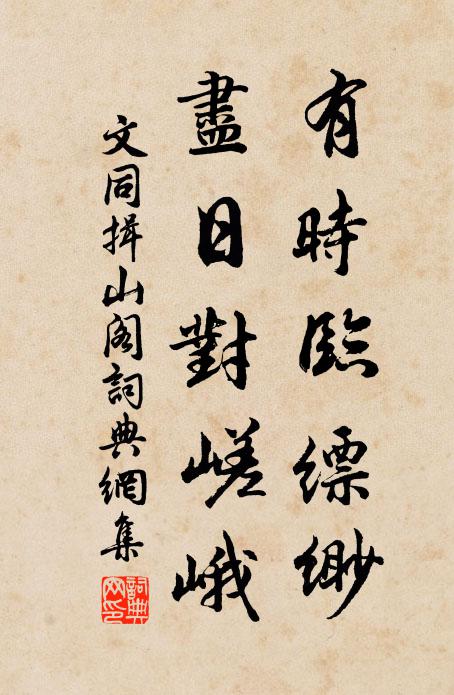 有時臨縹緲
盡日對嵯峨
文同揖山閣詞典網集
詞典网印